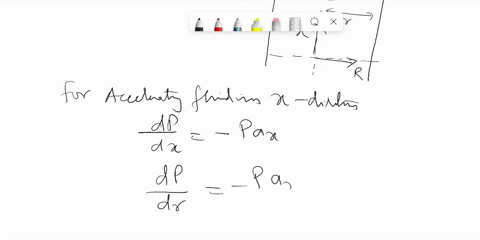 x r
R
for Accelerating fluid in x-direction
dP/dx = - ρax
dP/dr = - ρa